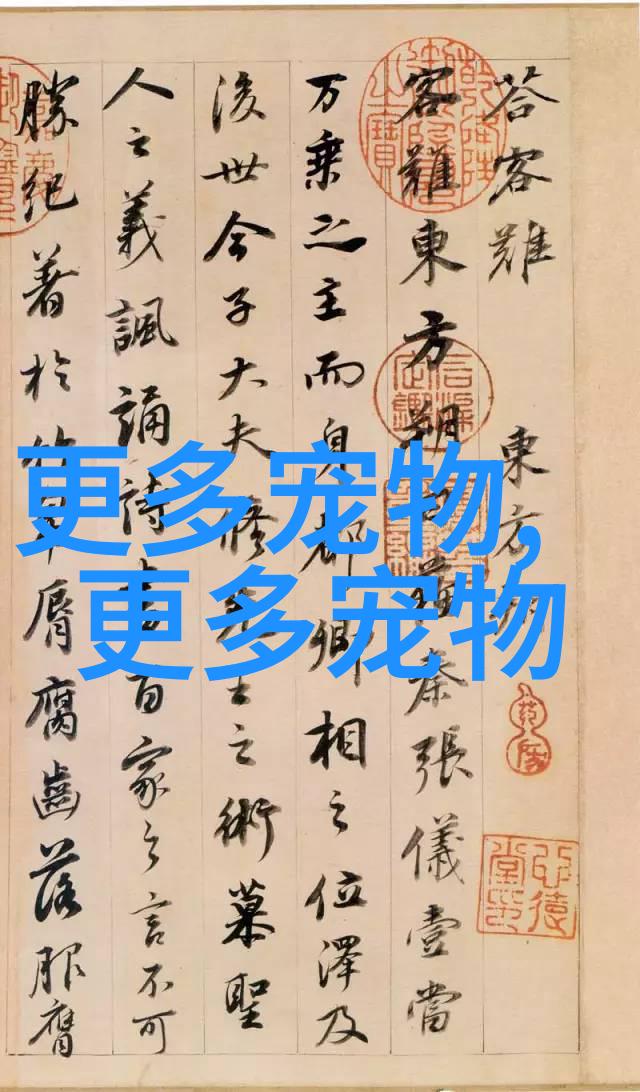 荅客難 東方
客難東方朔 秦張儀壹當
万乘之主而身都卿相之位澤及
後世今子大夫脩 之術慕聖
人之義諷誦詩書百家之言不可
勝紀著於 脣腐齒落服膺
更多宠物,
更多宠物